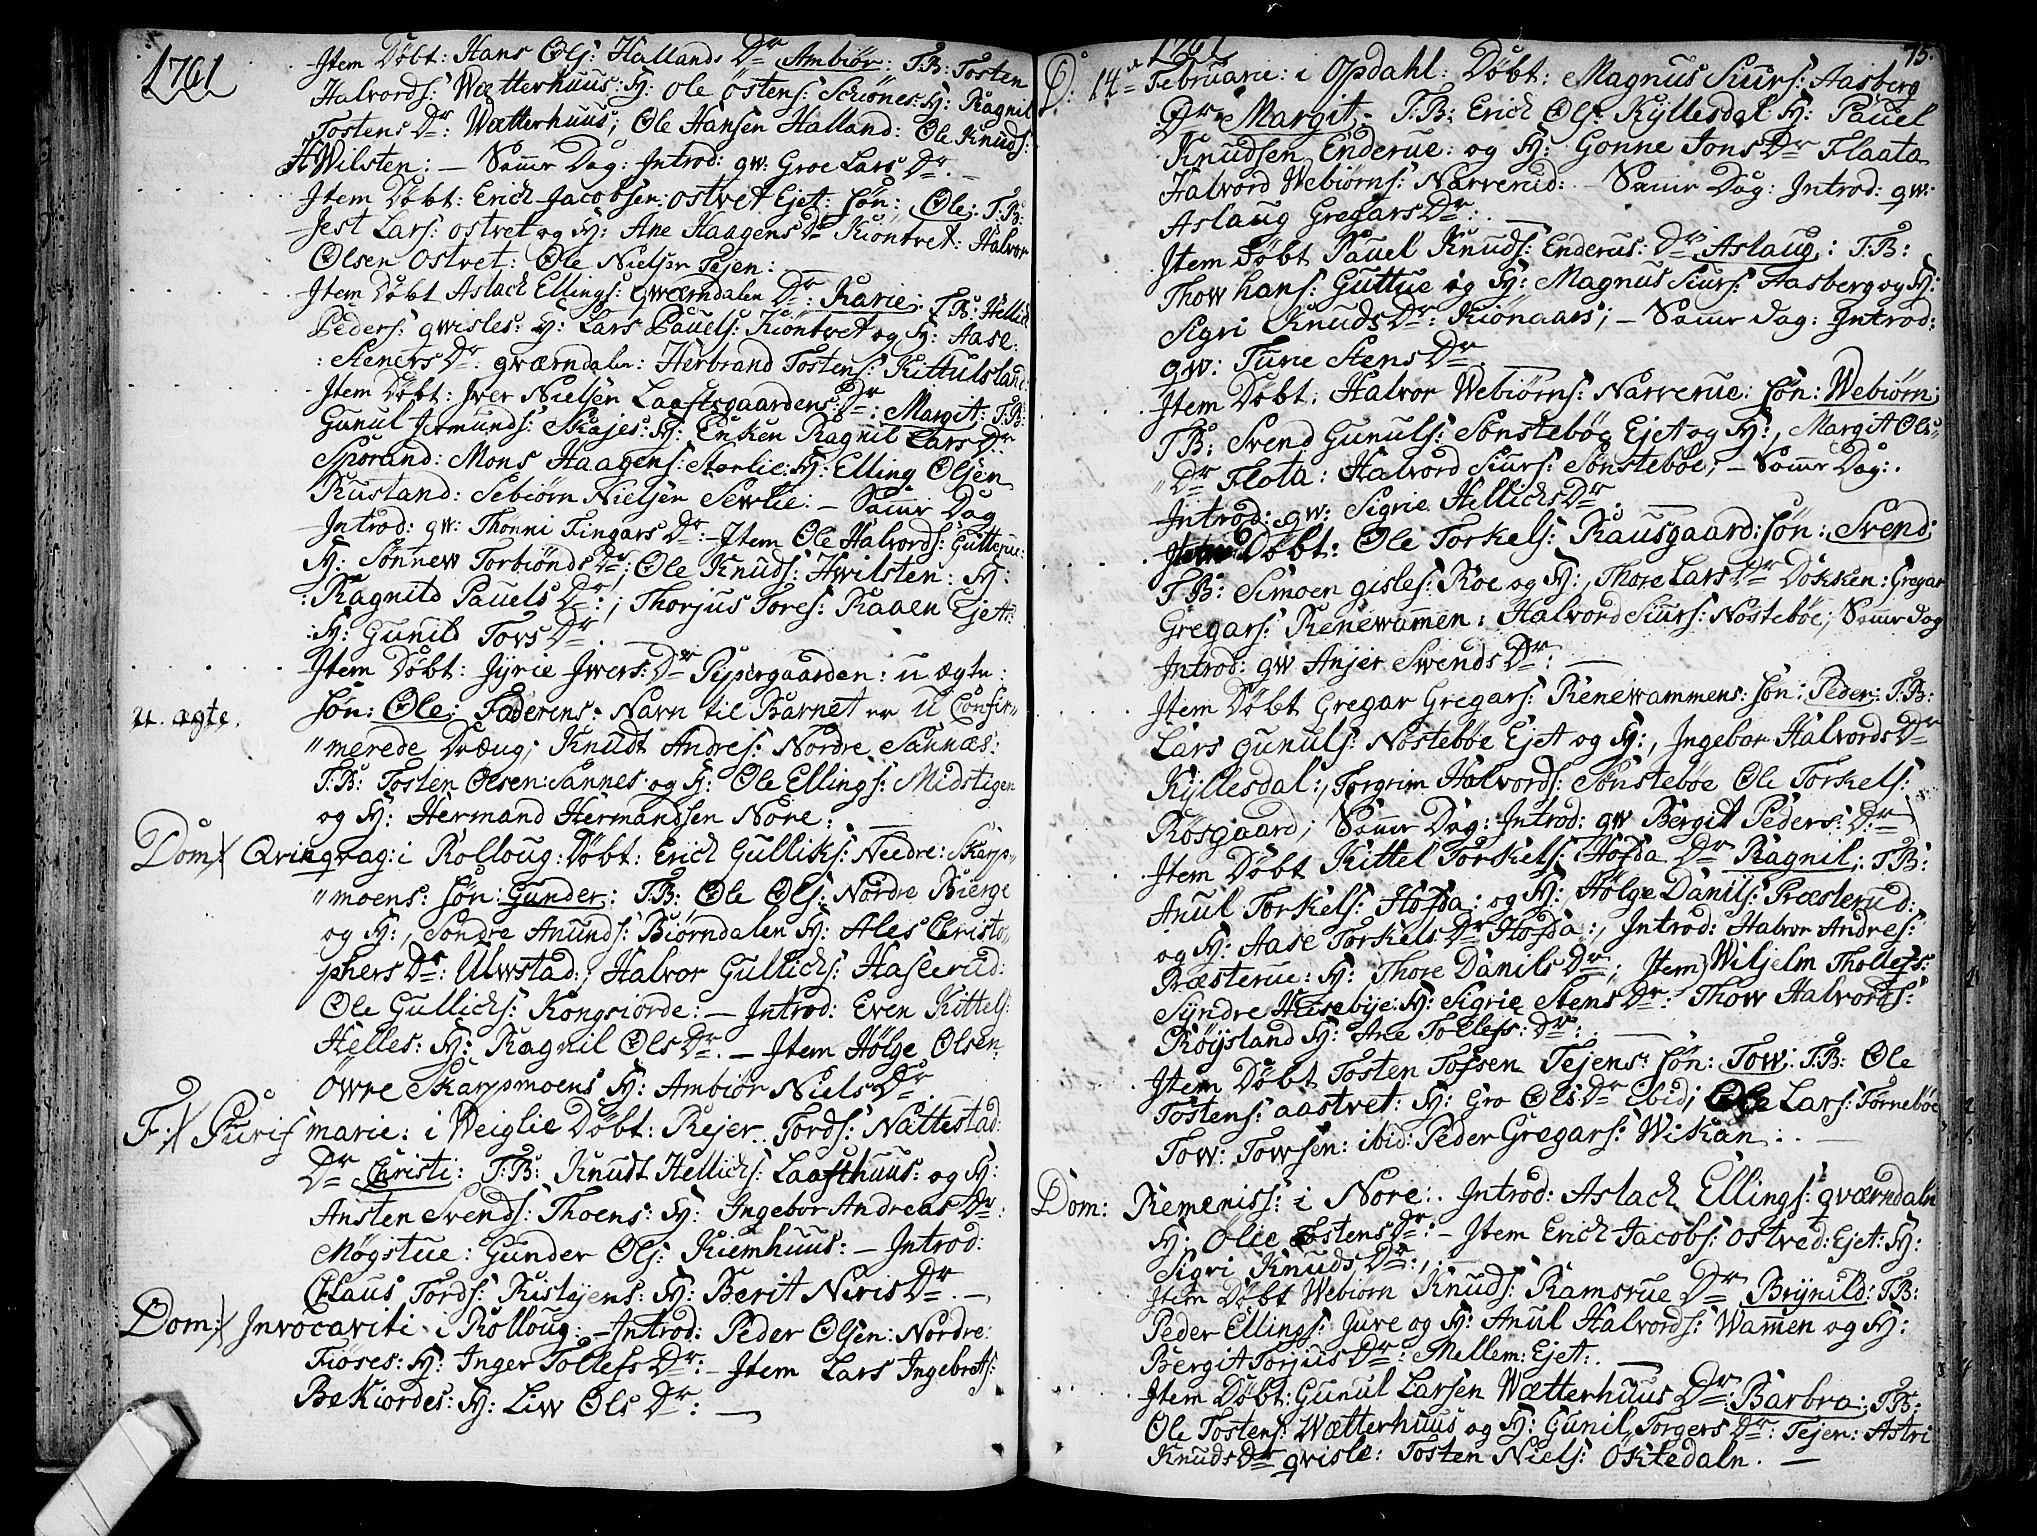 1761
Item Döbt: Hans Ols: Hallands Dr Ambiør: T:B: Tosten
Halvords: Wætterhuus: H: Ole Östens: Schiönes: H: Ragnil
Tostens Dr: Wætterhuus; Ole Hansen Halland: Ole Knuds:
HWilsten: — Samr Dag: Introd: gw: Groe Lars Dr. —
Item Döbt: Erich Jacobsen: Ostvet Ejet: Søn: Ole: T:B:
Jest Lars: Ostvet og H: Ane Haagens Dr Kiöntvet: Halvor
Olsen Ostvet: Ole Nielsen Tejen: —
Item Döbt Aslach Ellings: qværndalen Dr: Karie: T:B: Hellich
Peders: qwisles: H: Lars Pauels: Kiöntvet og H: Aase:
: Steners Dr: qværndalen: Herbrand Tostens: Kittulsland:
Item Döbt: Jver Nielsen Laaftsgaardens: Dr: Margit: T:B:
Gunul Jermunds: Skajes: H: Enken Ragnil Lars Dr:
Sporand: Mons Haagens: Storlie: H: Elling Olsen
Rustand: Sebiørn Nielsen Sewlie: — Samr Dag
Introd: gw: Thonni Fingars Dr: — Item Ole Halvords: Guttepue:
H: Sönnew Torbiönds Dr; Ole Knuds: Hwilsten: H:
: Ragnild Pauels Dr: ; Thorjus Tores: Raaen Ejet:
H: Gunild Tovs Dr. —
Item Döbt: Jyrie Jwers: Dr Pipergaarden: u ægte:
u. ægte. Søn: Ole: Faderens Navn til Barnet er U Confir-
"merede Dræng; Knudt Andres: Nordre Sannæs:
T:B: Tosten Olsen: Sannes og H: Ole Ellings: Midstigen
og H: Hermand Hermandsen Nore: —
Dom: Qvinqvag: i Rolloug: Döbt: Erich Gulliks: Needre: Skarp-
"moens: Søn: Gunder: T:B: Ole Ols: Nordre Bierge
og H:, Söndre Anunds: Biørndalen H: Ales Christo-
phers Dr: Ulwstad:, Halvor Gullichs: Haserud:
Ole Gullichs: Kongsiorde: — Introd: Even Kittels:
Helles: H: Ragnil Ols Dr. — Item Hölge Olsen
Öwre Skarpmoens H: Ambiør Niels Dr.
F: Purif marie: i Weiglie Döbt: Rejer Tords: Nattestad:
Dr Christi: T:B: Knudt Hellichs: Laafthuus: og H:
Ansten Svends: Thoens: H: Ingebor Andreas Dr:
Møgstue: Gunder Ols: Kiemhuus: — Introd:
Claus Tords: Rislejens: H: Berit Niris Dr. —
Dom: Invocaviti i Rolloug: — Introd: Peder Olsen: Nordre:
Fiöses: H: Inger Tollefs Dr: — Item Lars Ingebrets:
Bekiordes: H: Liw Ols Dr: —
1761
75.
D: 14de Februarie: i Opdahl: Döbt: Magnus Siurs: Aasberg
Dr Margit. T:B: Erich Ols: Kyllesdal H: Pauel
Knudsen Enderue: og H: Gonne Jons Dr Flaata
Halvord Webiørns: Narverud: — Samr Dag: Introd: gw:
Aslaug Gregars Dr: —
Item Döbt Pauel Knuds: Enderus: Dr Aslaug: T:B:
Thow Hans: Guttue og H: Magnus Siurs: Aasberg og H:
Sigri Knuds Dr: Kiönaas; — Samr Dag: Introd:
gw: Turie Stens Dr —
Item Döbt: Halvor Webiørns: Narverue: Søn: Webiørn:
T:B: Svend Gunuls: Sönstebøe Ejet og H:, Margit Ols-
"Dr Flota: Halvord Siurs: Sönstebøe; — Samr Dag:
Introd: gw: Sigrie Hellichs Dr. —
Item Döbt: Ole Torkels: Rausgaard: Søn: Svend:
T:B: Simoen Gisles: Roe og H:, Thore Lars Dr Dokken: Gregar
Gregars: Renewammen: Halvord Siurs: Nostebøe; Samr Dag
Introd: gw Anjer Swends Dr: —
Item Döbt Gregar Gregars: Renewammens: Søn: Peder: T:B:
Lars Gunuls: Nostebøe Ejet og H:, Ingebor Halvords Dr
Kyllesdal:, Torgrim Halvords: Sönstebøe Ole Torkels:
Rösgaard; Samr Dag: Introd: gw Bergit Peders: Dr —
Item Döbt Kittel Torkels: Hofda Dr Ragnil: T:B:
Anul Torkels: Hofda: og H: Hölge Danils: Præsterud:
og H: Aase Torkels Dr Hofda:, Introd: Halvor Andres:
Præsterue: H: Thore Danils Dr; Item Wiljelm Thollefs:
Syndre Husebye: H: Sigrie Stens Dr: Thow Halvords:
Röysland H: Ane Tollefs: Dr: —
Item Döbt Tosten Tofsen Tejens: Søn: Tow: T:B: Ole
Tostens: aastvet: H: Gro Ols Dr Ebid; Ole Lars: Törnebøe
Tow: Towsen: ibid: Peder Gregars: Wikan: —
Dom: Remeniss: i Nore: Introd: Aslach Ellings: qværndaln
H: Ölie Tostens Dr: — Item Erich Jacobs: Ostved: Ejet: H:
Sigri Knuds Dr:, —
Item Döbt Webiørn Knuds: Ramsrue Dr Brynild: T:B:
Peder Ellings: Jure og H: Anul Halvords: Wamen og H:
Bergit Torjus Dr: Mellem: Ejet: —
Item Döbt: Gunul Larsen Wætterhuus Dr: Barbro: T:B:
Ole Tostens: Wætterhuus og H: Gunil Torgers Dr: Tejen: Astri
Knuds Dr qvisle: Tosten Niels: Öktedaln. —